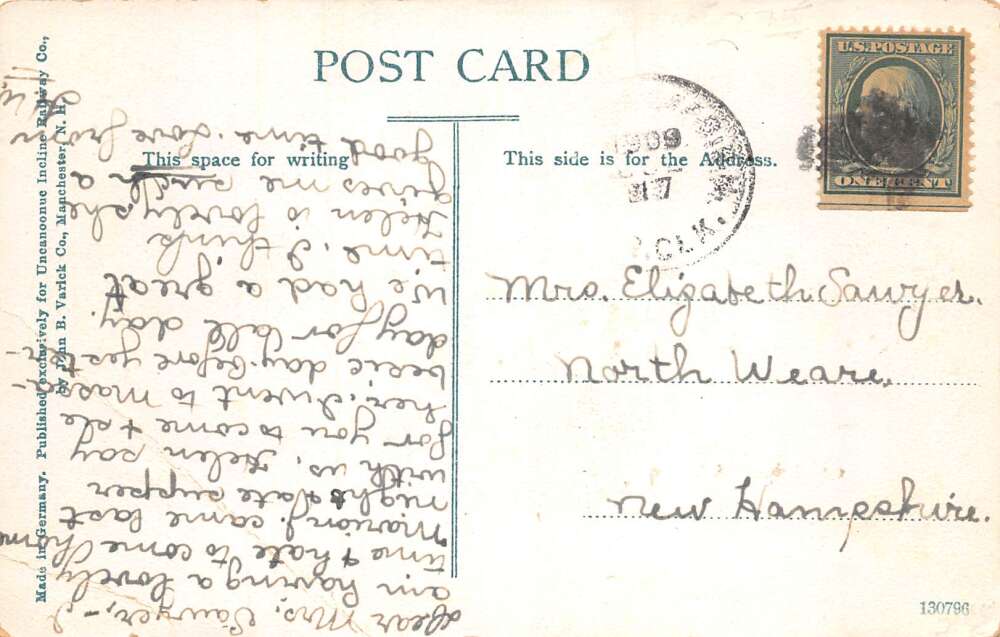 POST CARD
This space for writing
This side is for the Address.
U.S. POSTAGE
ONE CENT
1909
CLK.
Mrs. Elizabeth Sawyer.
North Weare,
New Hampshire.
Dear Mrs. Sawyer, - I
am having a lovely
time & hate to come home
Marion J. came last
night & ate supper
with us. Helen say
for you to come & see
her. I went to Massa-
besic day before yest-
day for all day.
We had a great
time. I think
Helen is lovely she
gives me such a
good time. Love from
Made in Germany. Published exclusively for Uncanoonuc Incline Railway Co.,
by John B. Varick Co., Manchester, N. H.
130796